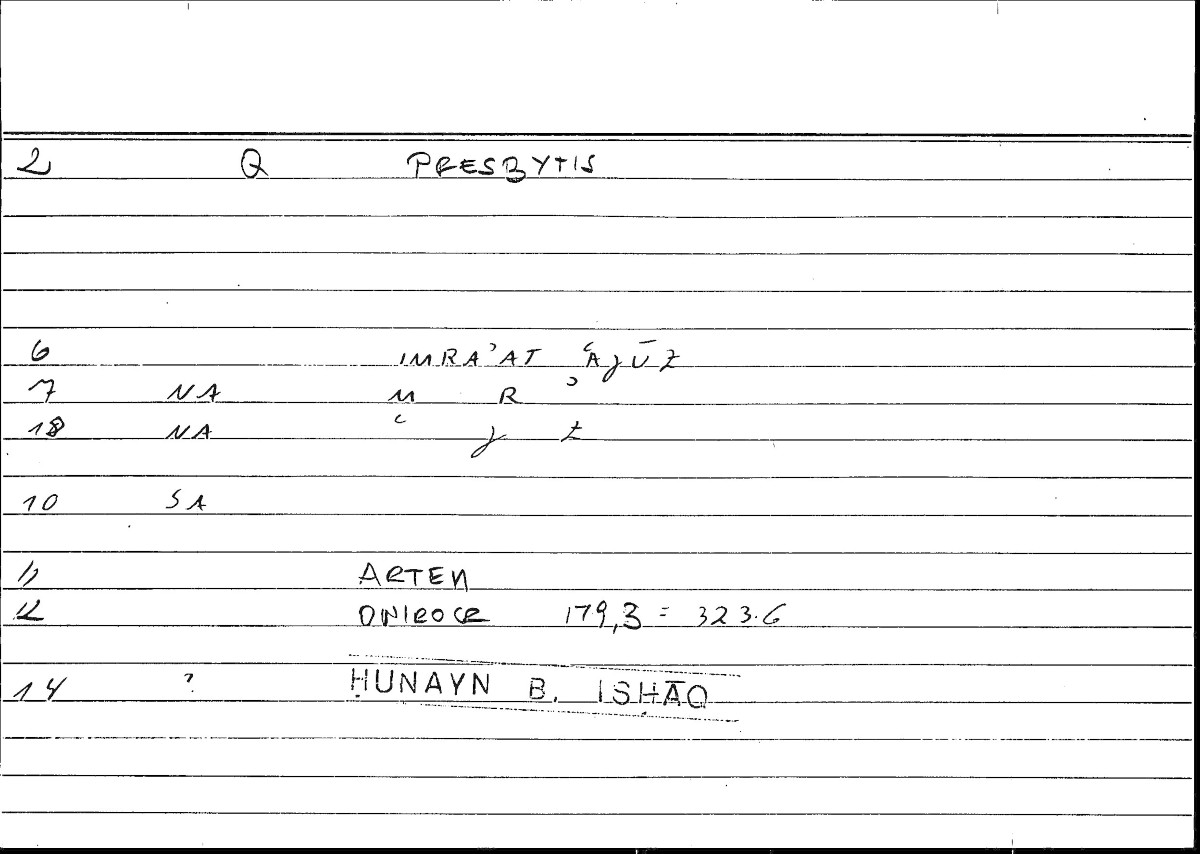 2 Q PRESBYTIS
6 IMRAʾAT ʿAJŪZ
7 NA M R ʾ
18 NA ʿ J Z
10 SA
11 ARTEM
12 ONIROCR 179,3 = 323.6
14 ? ḤUNAYN B. ISḤĀQ